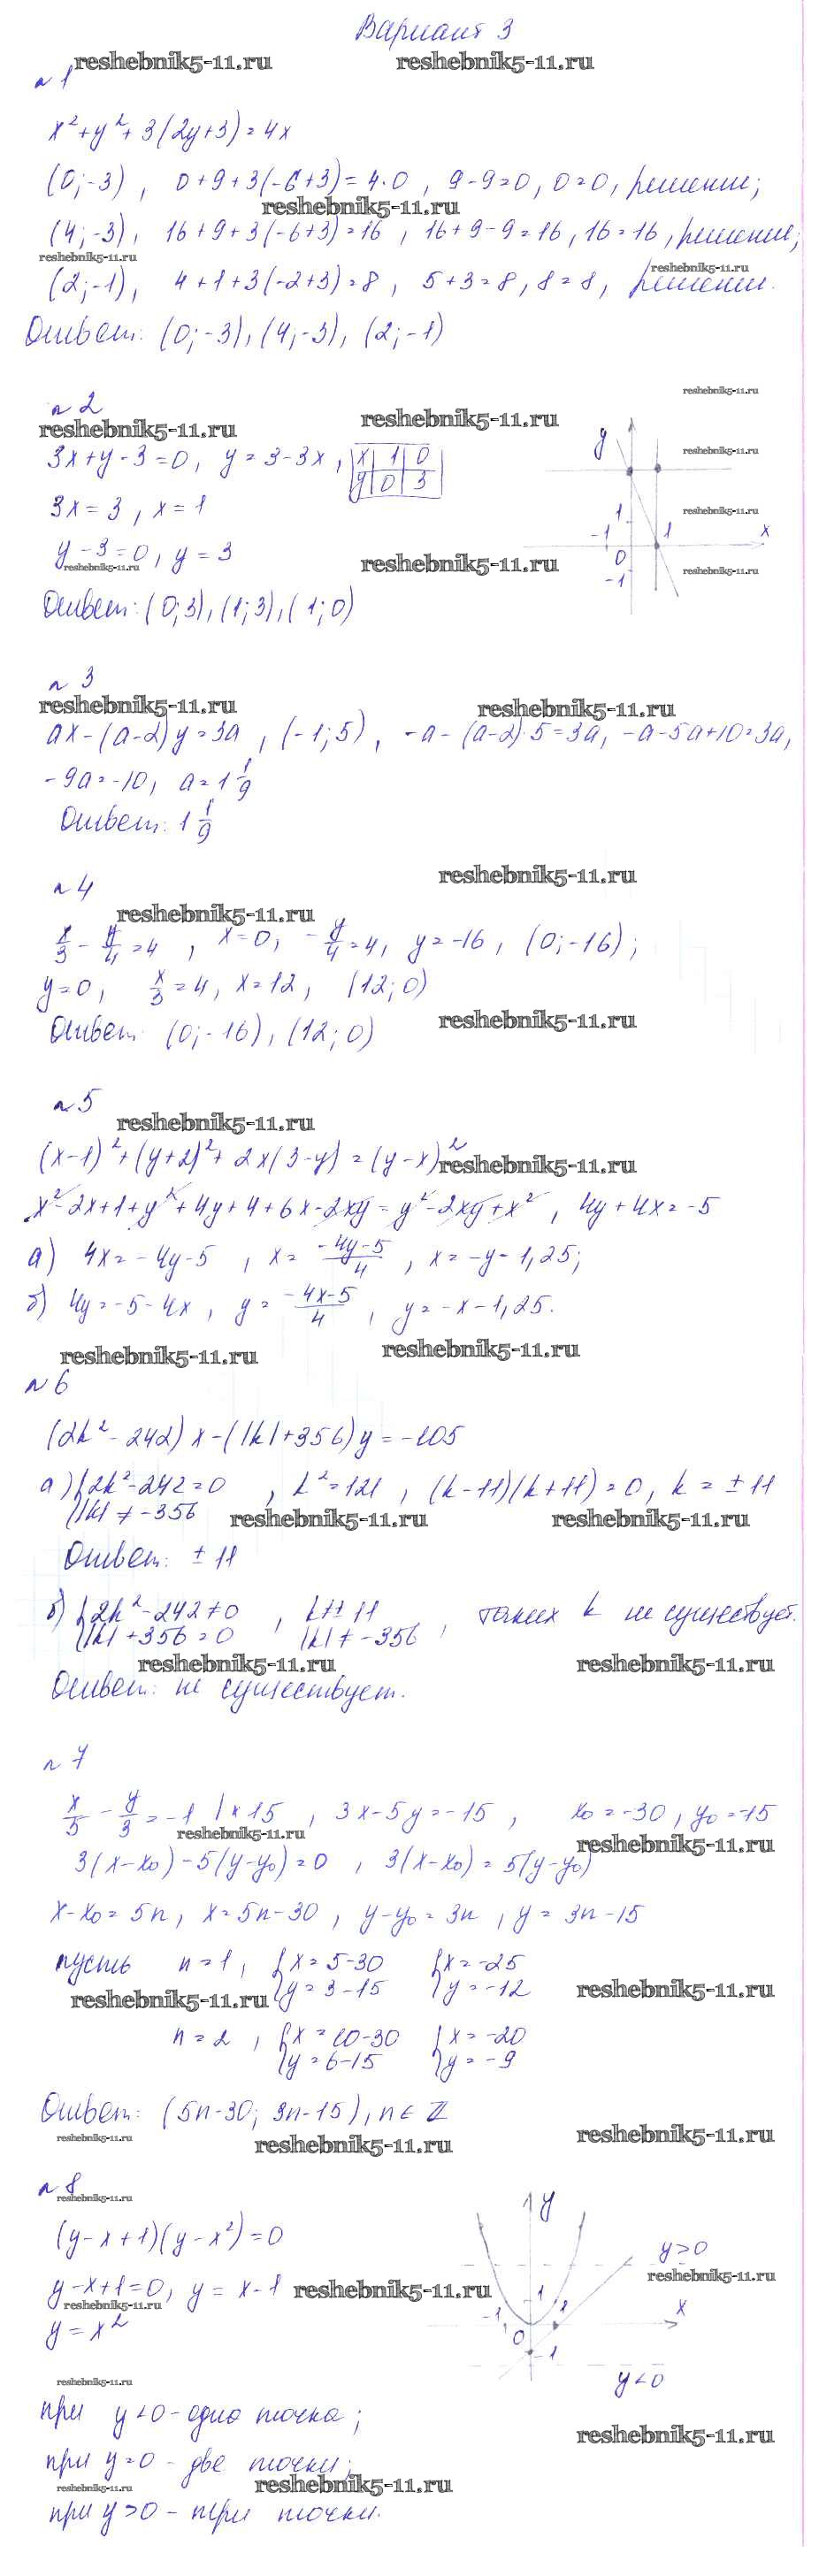 Вариант 3
reshebnik5-11.ru reshebnik5-11.ru
n 1
x²+y²+3(2y+3)=4x
(0;-3), 0+9+3(-6+3)=4·0, 9-9=0, 0=0, решение;
reshebnik5-11.ru
(4;-3), 16+9+3(-6+3)=16, 16+9-9=16, 16=16, решение;
reshebnik5-11.ru reshebnik5-11.ru
(2;-1), 4+1+3(-2+3)=8, 5+3=8, 8=8, решение.
Ответ: (0;-3), (4;-3), (2;-1)
reshebnik5-11.ru
n 2
reshebnik5-11.ru reshebnik5-11.ru
3x+y-3=0, y=3-3x, x 1 0
y 0 3
y
reshebnik5-11.ru
3x=3, x=1
1 reshebnik5-11.ru
-1 1 x
y-3=0, y=3
0
reshebnik5-11.ru reshebnik5-11.ru reshebnik5-11.ru
-1
Ответ: (0;3), (1;3), (1;0)
n 3
reshebnik5-11.ru reshebnik5-11.ru
ax-(a-2)y=3a, (-1;5), -a-(a-2)·5=3a, -a-5a+10=3a,
-9a=-10, a=1 1/9
Ответ: 1 1/9
reshebnik5-11.ru
n 4
reshebnik5-11.ru
x/3 - y/4 = 4, x=0, -y/4=4, y=-16, (0;-16);
y=0, x/3=4, x=12, (12;0)
Ответ: (0;-16), (12;0)
reshebnik5-11.ru
n 5
reshebnik5-11.ru
(x-1)²+(y+2)²+2x(3-y)=(y-x)²
reshebnik5-11.ru
x²-2x+1+y²+4y+4+6x-2xy=y²-2xy+x², 4y+4x=-5
а) 4x=-4y-5, x= -4y-5/4, x=-y-1,25;
б) 4y=-5-4x, y= -4x-5/4, y=-x-1,25.
reshebnik5-11.ru reshebnik5-11.ru
n 6
(2k²-242)x-(|k|+356)y=-105
а) {2k²-242=0, k²=121, (k-11)(k+11)=0, k=±11
|k|≠-356
reshebnik5-11.ru reshebnik5-11.ru
Ответ: ±11
б) {2k²-242≠0, k≠±11, таких k не существует.
|k|+356=0 |k|≠-356
reshebnik5-11.ru reshebnik5-11.ru
Ответ: не существует.
n 7
x/5 - y/3 = -1 |×15, 3x-5y=-15, x₀=-30, y₀=-15
reshebnik5-11.ru reshebnik5-11.ru
3(x-x₀)-5(y-y₀)=0, 3(x-x₀)=5(y-y₀)
x-x₀=5n, x=5n-30, y-y₀=3n, y=3n-15
пусть n=1, {x=5-30 {x=-25
y=3-15 y=-12
reshebnik5-11.ru reshebnik5-11.ru
n=2, {x=10-30 {x=-20
y=6-15 y=-9
Ответ: (5n-30; 3n-15), n∈Z
reshebnik5-11.ru reshebnik5-11.ru reshebnik5-11.ru
n 8
reshebnik5-11.ru
y
(y-x+1)(y-x²)=0
y>0
reshebnik5-11.ru
y-x+1=0, y=x-1
reshebnik5-11.ru
reshebnik5-11.ru
1
-1 1 x
y=x²
0
-1
y<0
reshebnik5-11.ru
при y<0 - одна точка;
reshebnik5-11.ru
при y=0 - две точки;
reshebnik5-11.ru reshebnik5-11.ru
при y>0 - три точки.